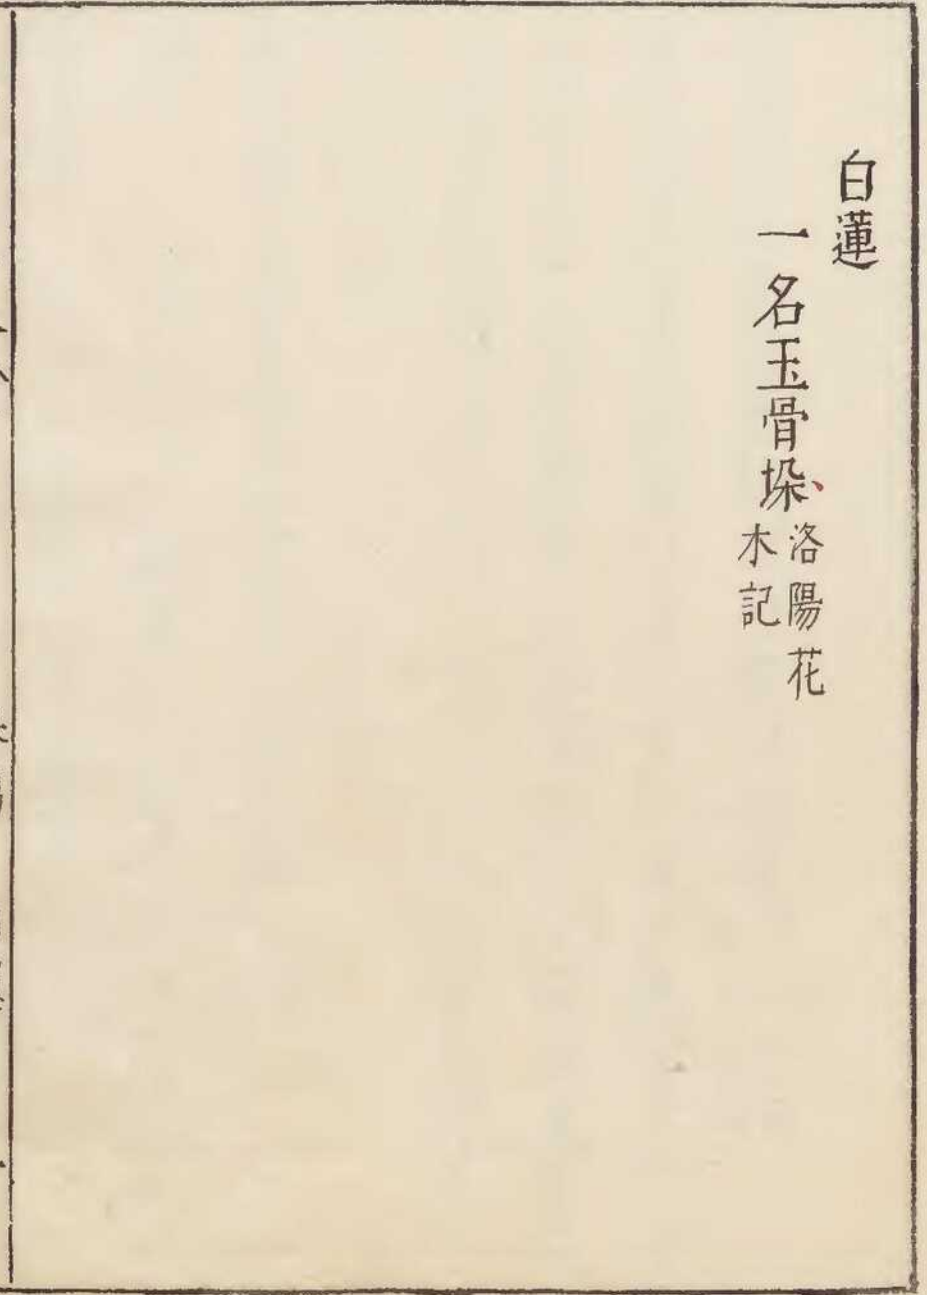 白蓮
一名玉骨垛、洛陽花
木記